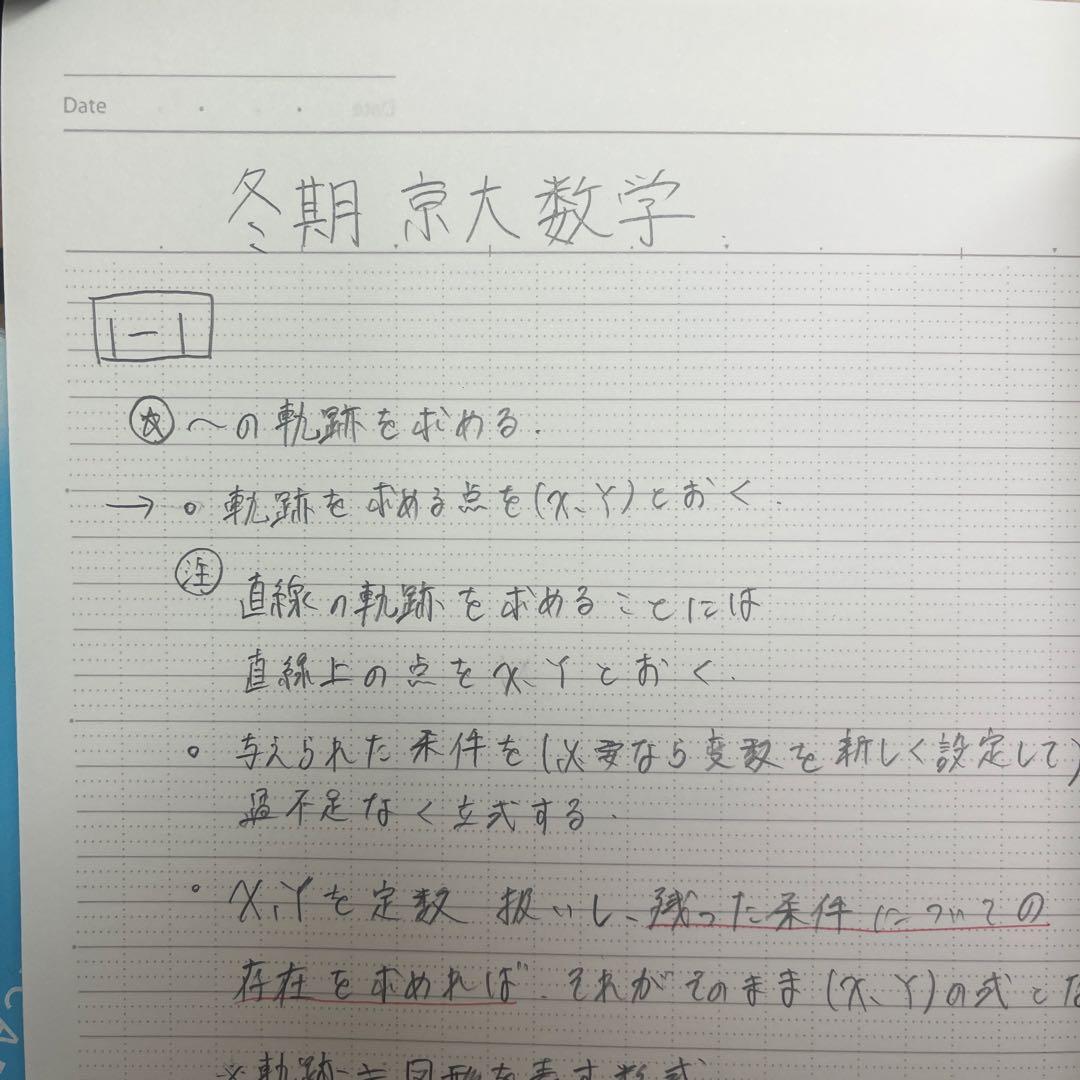 Date
冬期 京大数学
1-1
☆ 〜の軌跡を求める.
→ ○ 軌跡を求める点を(X、Y)とおく.
注 直線の軌跡を求めることには
直線上の点をX、Yとおく.
○ 与えられた条件を(必要なら変数を新しく設定して)
過不足なく立式する.
○ X、Yを定数 扱いし、残った条件についての
存在を求めれば、それがそのまま(X、Y)の式とな
※軌跡＝図形を表す数式